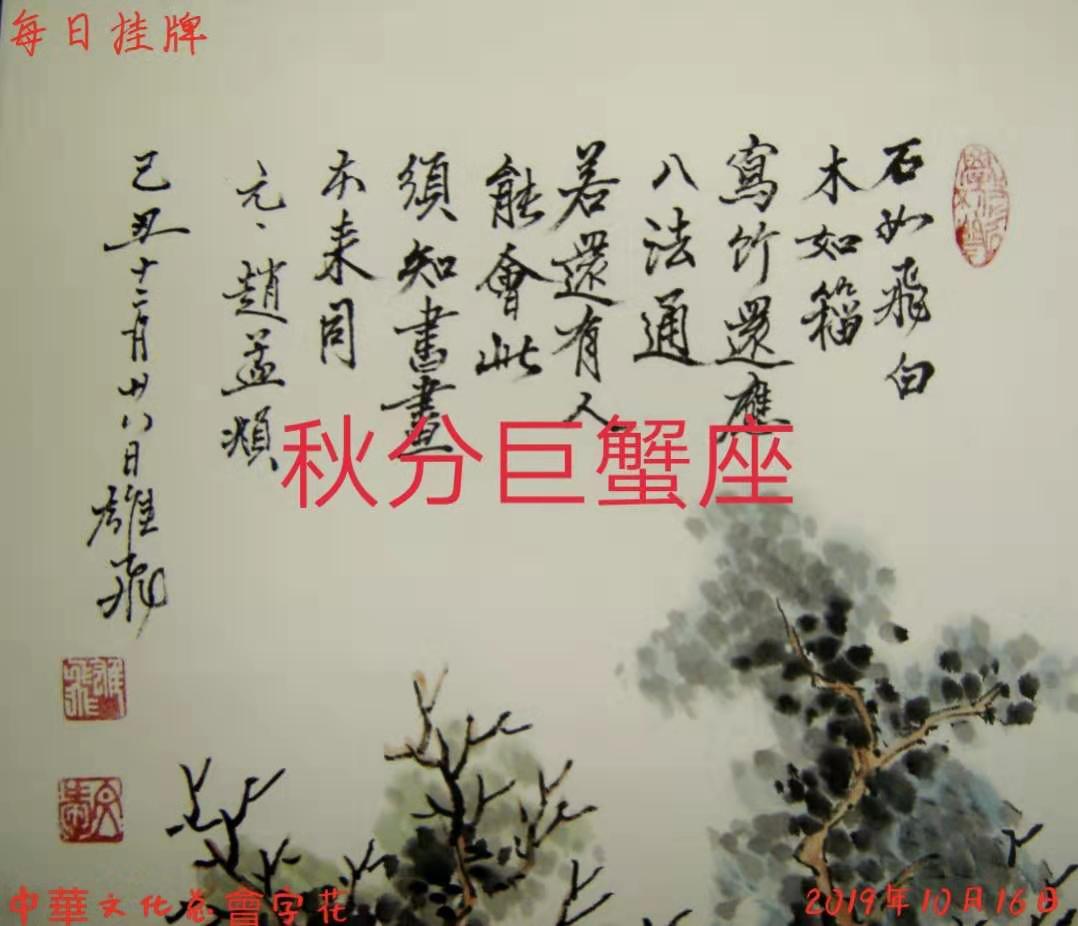 每日挂牌
石如飛白
木如籀
寫竹還應
八法通
若還有人
能會此
須知書畫
本来同
元、趙孟頫
己丑十二月廿八日雄飛
秋分巨蟹座
雄飛
中華文化总會字花
2019年10月16日